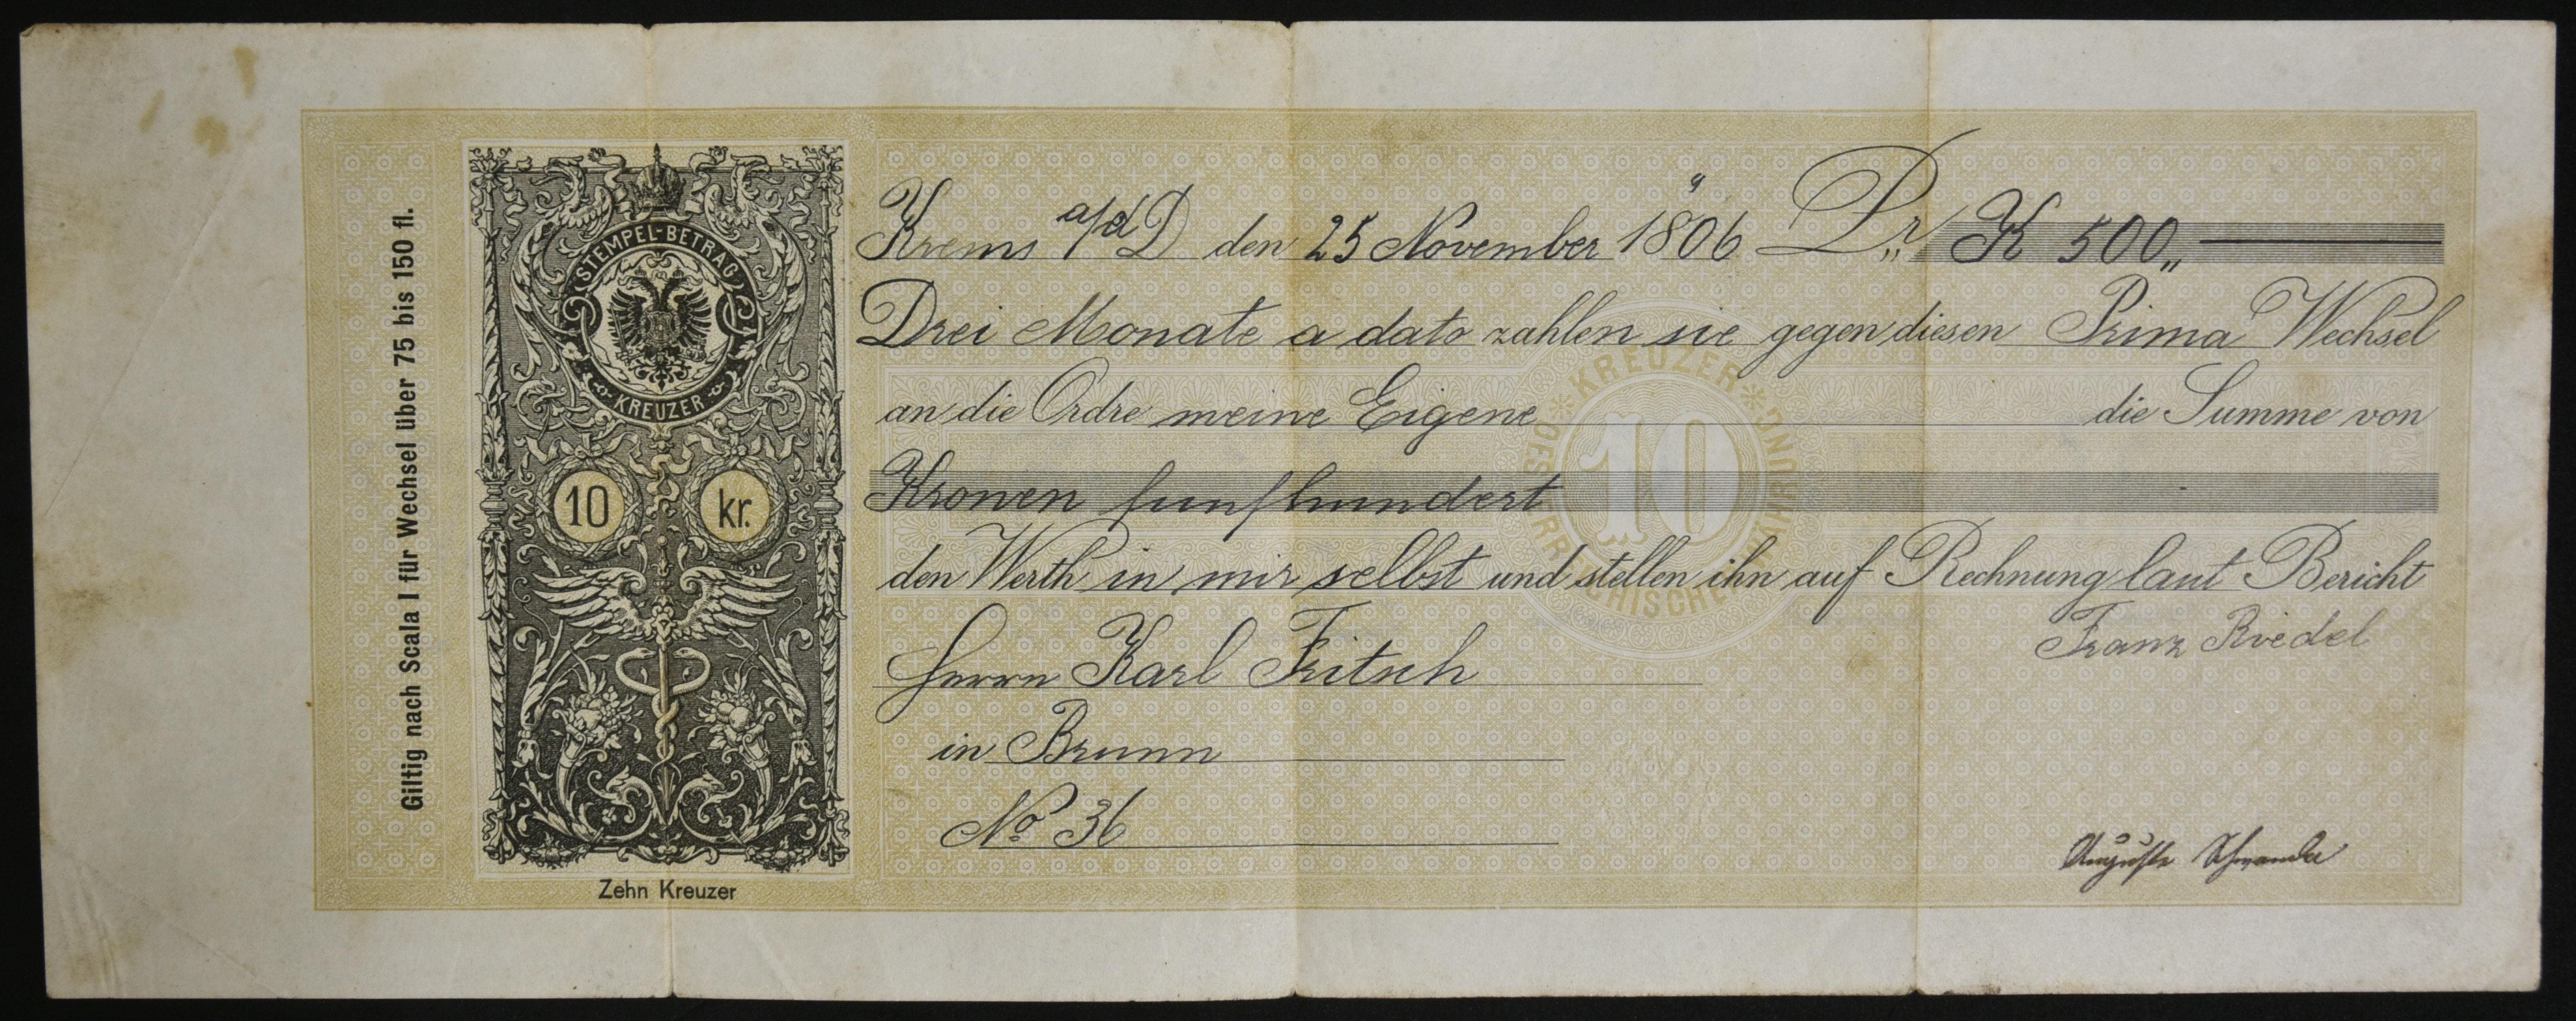 Giltig nach Scala I für Wechsel über 75 bis 150 fl.
STEMPEL-BETRAG
KREUZER
10 kr.
Zehn Kreuzer
Krems a/d D den 25 November 1806 Pr. K 500,,
Drei Monate a dato zahlen sie gegen diesen Prima Wechsel
an die Ordre meine Eigene die Summe von
Kronen funfhundert
den Werth in mir selbst und stellen ihn auf Rechnung laut Bericht
Franz Riedel
Herrn Karl Fritsch
in Brunn
No 36
Auguste
KREUZER
10
OESTERREICHISCHE WÄHRUNG